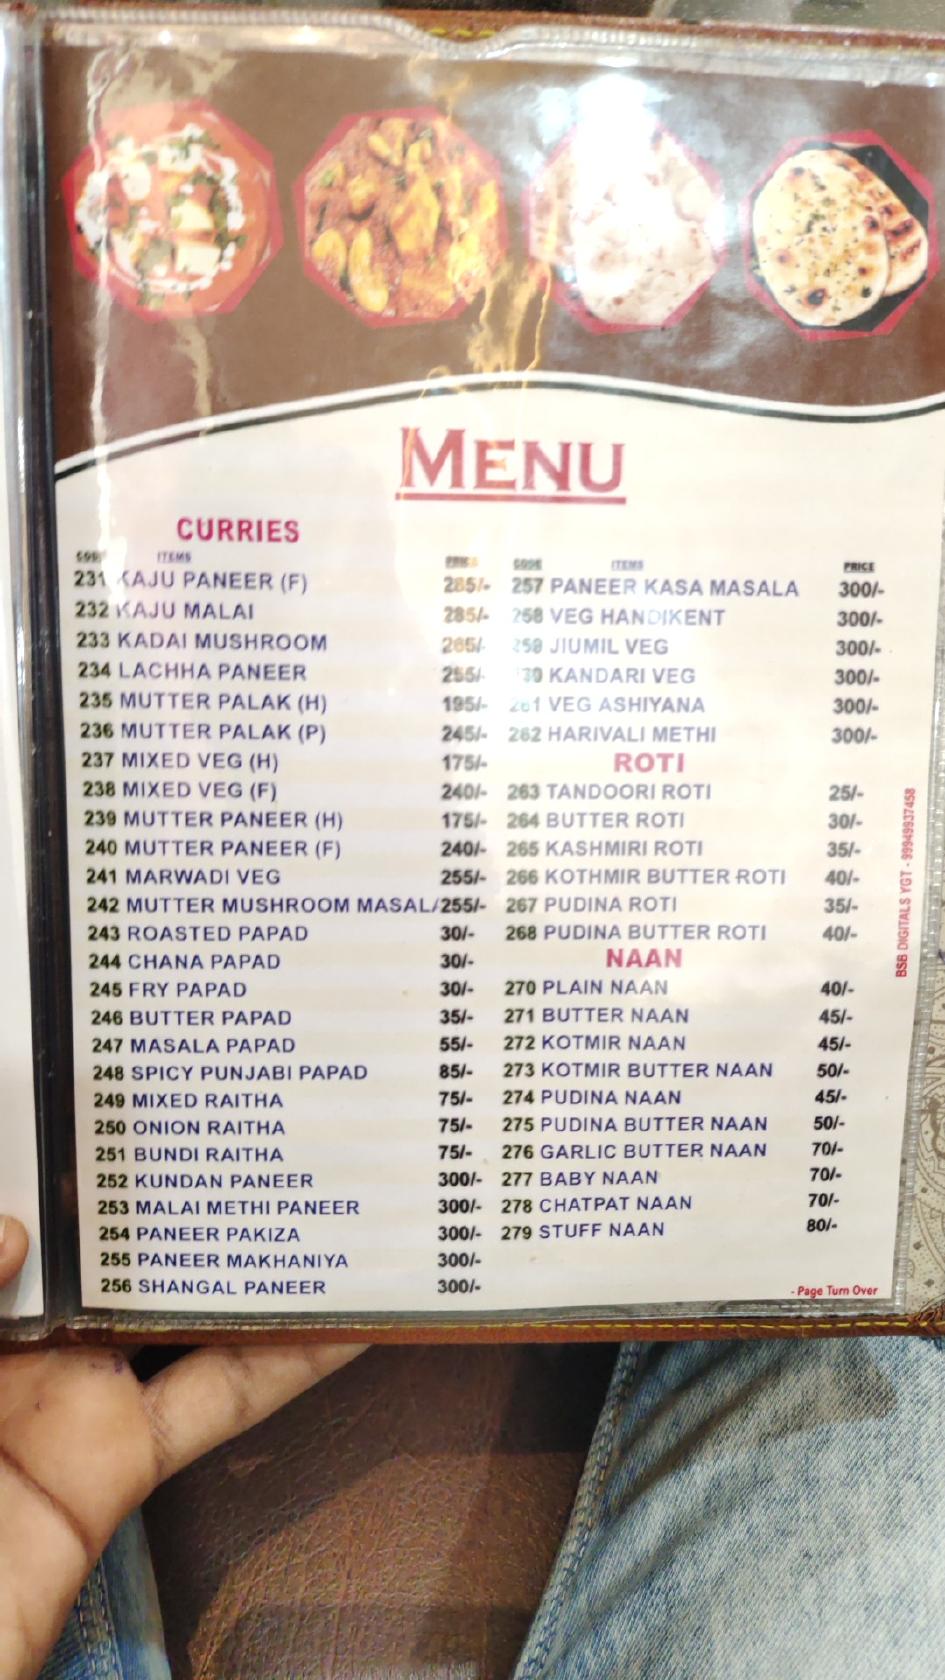 MENU
CURRIES
CODE ITEMS PRICE
231 KAJU PANEER (F) 285/-
232 KAJU MALAI 285/-
233 KADAI MUSHROOM 265/-
234 LACHHA PANEER 255/-
235 MUTTER PALAK (H) 195/-
236 MUTTER PALAK (P) 245/-
237 MIXED VEG (H) 175/-
238 MIXED VEG (F) 240/-
239 MUTTER PANEER (H) 175/-
240 MUTTER PANEER (F) 240/-
241 MARWADI VEG 255/-
242 MUTTER MUSHROOM MASAL 255/-
243 ROASTED PAPAD 30/-
244 CHANA PAPAD 30/-
245 FRY PAPAD 30/-
246 BUTTER PAPAD 35/-
247 MASALA PAPAD 55/-
248 SPICY PUNJABI PAPAD 85/-
249 MIXED RAITHA 75/-
250 ONION RAITHA 75/-
251 BUNDI RAITHA 75/-
252 KUNDAN PANEER 300/-
253 MALAI METHI PANEER 300/-
254 PANEER PAKIZA 300/-
255 PANEER MAKHANIYA 300/-
256 SHANGAL PANEER 300/-
CODE ITEMS PRICE
257 PANEER KASA MASALA 300/-
258 VEG HANDIKENT 300/-
259 JIUMIL VEG 300/-
KANDARI VEG 300/-
261 VEG ASHIYANA 300/-
262 HARIVALI METHI 300/-
ROTI
263 TANDOORI ROTI 25/-
264 BUTTER ROTI 30/-
265 KASHMIRI ROTI 35/-
266 KOTHMIR BUTTER ROTI 40/-
267 PUDINA ROTI 35/-
268 PUDINA BUTTER ROTI 40/-
NAAN
270 PLAIN NAAN 40/-
271 BUTTER NAAN 45/-
272 KOTMIR NAAN 45/-
273 KOTMIR BUTTER NAAN 50/-
274 PUDINA NAAN 45/-
275 PUDINA BUTTER NAAN 50/-
276 GARLIC BUTTER NAAN 70/-
277 BABY NAAN 70/-
278 CHATPAT NAAN 70/-
279 STUFF NAAN 80/-
- Page Turn Over
BSB DIGITALS YGT - 99949937458